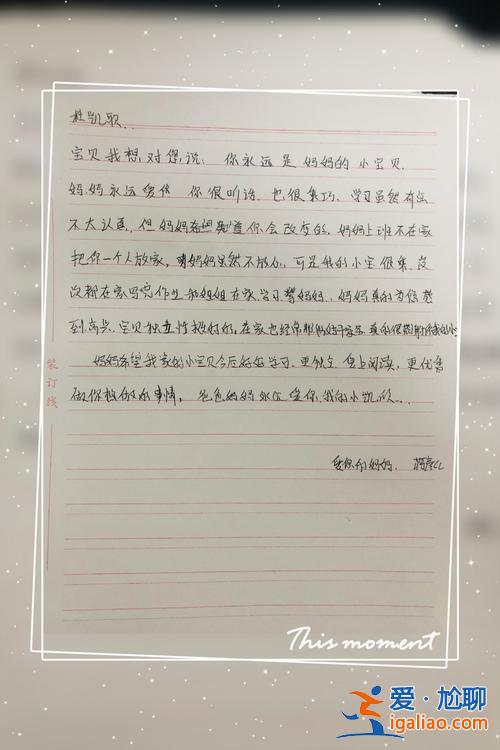 杜凯歌..
宝贝我想对您说: 你永远是妈妈的小宝贝.
妈.妈永远爱你 你很听话.也很乖巧. 学习虽然有点
不太认真,但妈妈知道你会改变的,妈妈上班不在家
把你一个人放家,妈妈虽然不放心,可是我的小宝很乖,每
次都在家写完作业和姐姐在家学习帮妈妈.妈妈真的为你感
到高兴.宝贝独立性挺好的,在家也经常帮妈妈
妈妈希望我家的小宝贝今后好好学习.更独立 爱上阅读,更优秀
做你想做的事情, 爸爸妈妈永远爱你.我的小凯歌...
爱你的妈妈.
装订线
This moment
爱·尬聊
igaliao.com